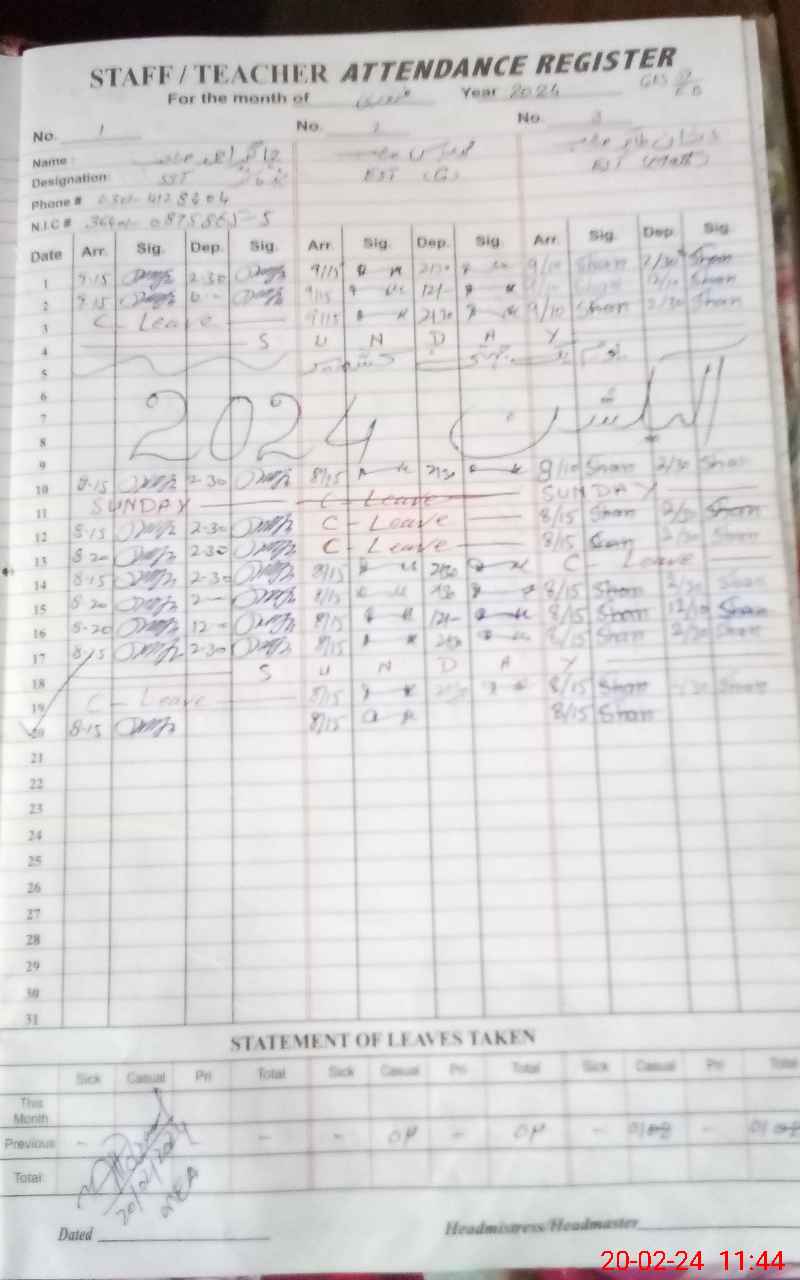 STAFF / TEACHER ATTENDANCE REGISTER
For the month of فروری Year 2024
No. 1 No. 2 No. 3
Name :
Designation: SST EST (G) EST (Math)
Phone #
N.I.C #
Date Arr. Sig. Dep. Sig. Arr. Sig. Dep. Sig. Arr. Sig. Dep. Sig.
1 9-15 2-30 9/15 2/30 9/10 Shan 2/30 Shan
2 9-15 9/15 12/- 9/10 Shan 12/10 Shan
3 C - Leave 9/15 2/30 9/10 Shan 2/30 Shan
4 S U N D A Y
5
6
7 2024 الیکشن
8
9
10 8-15 2-30 8/15 2/30 9/10 Shan 2/30 Shan
11 SUNDAY C - Leave SUNDAY
12 8-15 2-30 C - Leave 8/15 Shan 2/30 Shan
13 8-20 2-30 C - Leave 8/15 Shan 2/30 Shan
14 8-15 2-30 8/15 2/30 C - Leave
15 8-20 8/15 2/30 8/15 Shan 2/30 Shan
16 8-20 12- 8/15 12/- 8/15 Shan 12/10 Shan
17 8-15 2-30 8/15 2/30 8/15 Shan 2/30 Shan
18 S U N D A Y
19 C - Leave 8/15 2/30 8/15 Shan 2/30 Shan
20 8-15 8/15 8/15 Shan
21
22
23
24
25
26
27
28
29
30
31
STATEMENT OF LEAVES TAKEN
Sick Casual Pri Total Sick Casual Pri Total Sick Casual Pri Total
This Month
Previous - - - - - - 01 - 01
Total
20/02/2024
MEA
Dated Headmistress/Headmaster
20-02-24 11:44